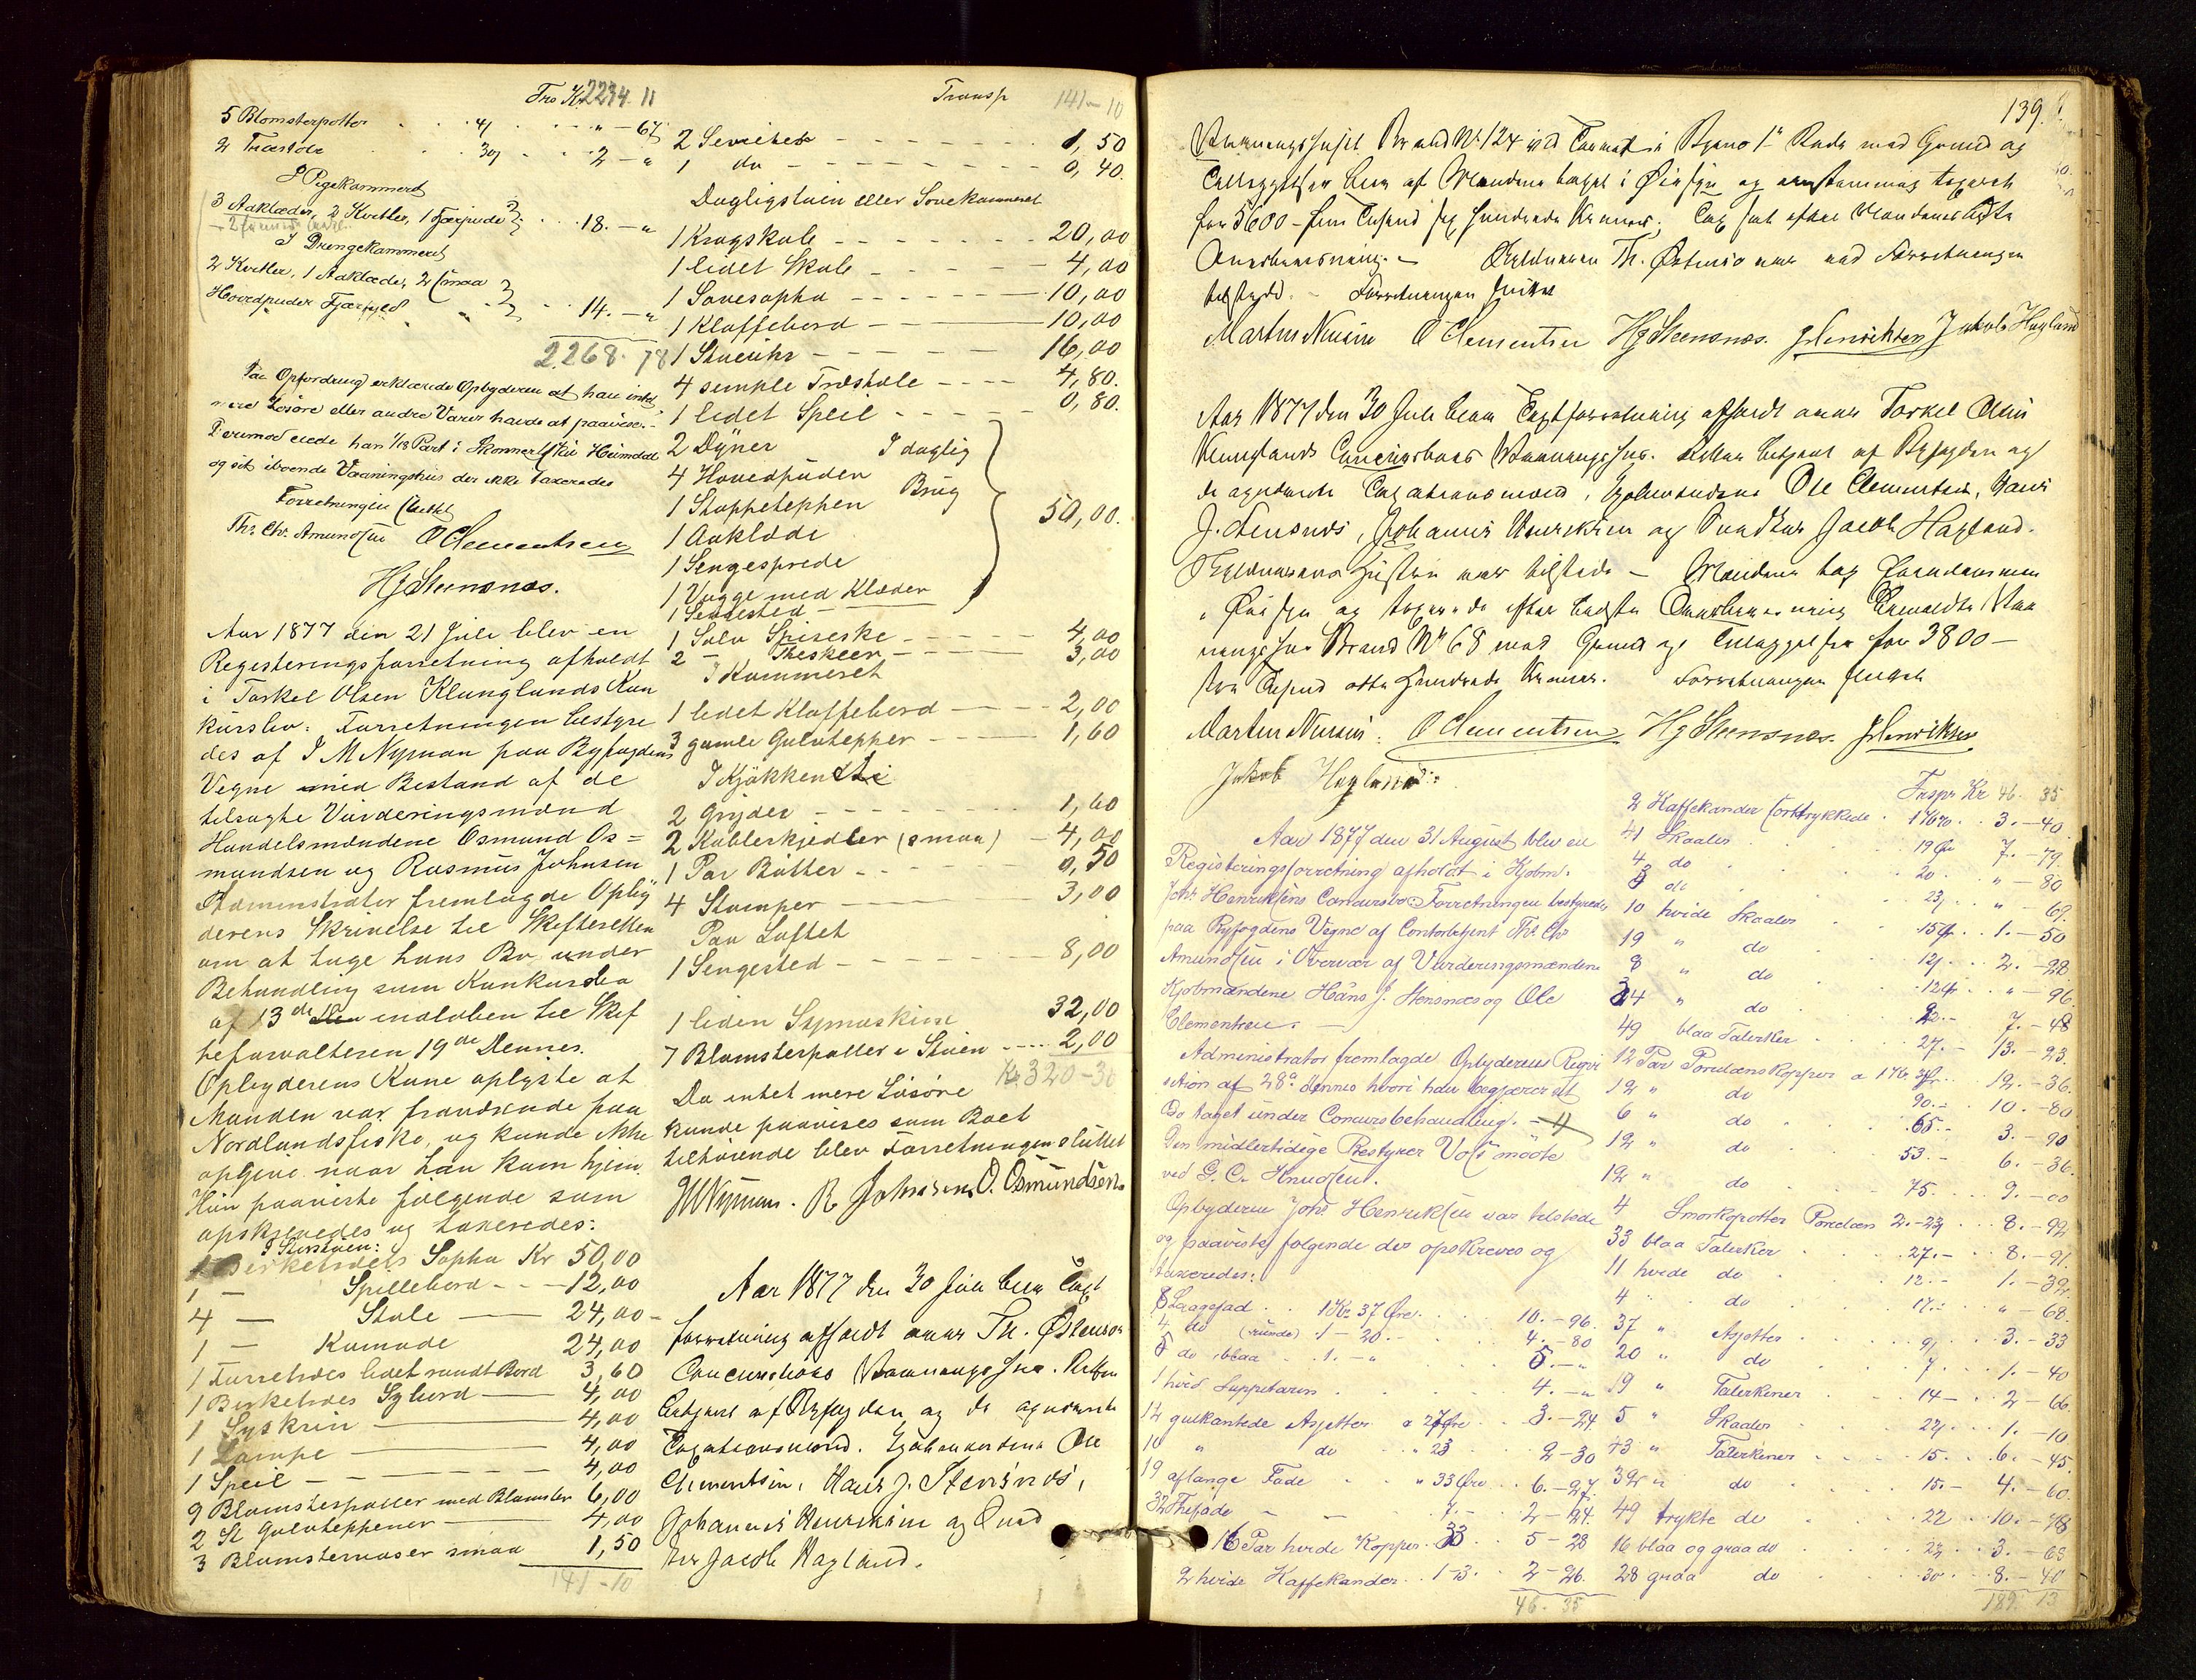 Trs Kr 2234. 11
5 Blomsterpotter . . . 4/ . . . " - 67
2 Træstole . . . 30/ . . 2 - "
I Pigekammeret
3 Aaklæder, 2 Kvitler, 1 Fjærpude . . . 18. - "
I Drengekammeret
2 Kvitler, 1 Aaklæde, 2 smaa
Hovedpuder Fjærfyld . . . 14. - "
2268. 78
Paa Opfordring erklærede Opbyderen at han intet
mere Løsøre eller andre Varer havde at paavise. -
Derimod eiede han 1/18 Part i Skonnert Heimdal
og sit iboende Vaaningshus der ikke taxeredes
Forretningen sluttet
Ths. Chr. Amundsen O Clementsen
HJ Steensnæs.
Aar 1877 den 21 Juli blev en
Registeringsforretning afholdt
i Torkel Olsen Klunglands Kon
kursbo. Forretningen bestyre
des af I M Nyman paa Byfogdens
Vegne med Bestand af de
tilsagte Vurderingsmænd
Handelsmændene Osmund Os=
mundsen og Rasmus Johnsen
Administrator fremlagde Opby
derens Skrivelse til Skifteretten
om at tage hans Bo under
Behandling som Konkursbo
af 13de indloben til Skif
teforvalteren 19de Dennes.
Opbyderens Kone oplyste at
Manden var fraværende paa
Nordlandsfiske, og kunde ikke
opgive naar han kom hjem.
Hun paaviste følgende som
opskrevedes og taxeredes:
I Storstuen:
1 Birketræes Sopha Kr 50,00
1 — Spillebord - - 12,00
4 — Stole — 24,00
1 — Komode 24,00
1 Furretræes lidet rundt Bord 3,60
1 Birketræes Sybord — 4,00
1 Syskrin — 4,00
1 Lampe — 4,00
1 Speil - - - 4,00
9 Blomsterpotter med Blomster 6,00
2 St Gulvteppener — 4,00
3 Blomstervaser smaa 1,50
141-10
Transp 141-10
2 Servieter - - - 1,50
1 do - - - 0,40.
Dagligstuen eller Sovekammeret
1 Kragskab - - - 20,00
1 lidet Skab - - - 4,00
1 Sovesopha - - - 10,00
1 Klaffebord — 10,00
1 Stueuhr - - - 16,00
4 simple Træstole - - - 4,80.
1 lidet Speil - - - 0,80.
2 Dyner I daglig
4 Hovedpuder Brug
1 Stoppeteppen 50,00.
1 Aaklæde
1 Sengesprede
1 Vugge med Klæder
1 Sengested -
1 Sølv Spiseske - - - 4,00
2 - Theskeer - - - 3,00
I Kammeret
1 lidet Klaffebord — 2,00
3 gamle Gulvtepper — 1,60
I Kjøkkenet
2 Gryder - - - 1,60
2 Kobberkjedler (smaa) - 4,00
1 Par Bøtter - - - 0,50
4 Stamper — 3,00
Paa Loftet
1 Sengested - - - 8,00
1 liden Symaskine 32,00
7 Blomsterpotter i Stuen - - - 2,00
Kr 320-30
Da intet mere Løsøre
kunde paavises som Boet
tilhørende blev Forretningen sluttet
JM Nyman. R Johnsen O. Osmundsen
Aar 1877 den 30 Juli blev Taxt
forretning afholdt over Th. Østensø
Concursboes Vaaningshus. Retten
betjent af Byfogden og de opnævnte
Taxationsmænd. Kjøbmændene Ole
Clementsen, Hans J. Stensnæs,
Johannes Henriksen og Sned
ker Jacob Hagland.
139.
Vaaningshuset Brand No 124 ved Torvet i Byens 1ste Rode med Grund og
Tilliggelser blev af Mændene taget i Øiesyn og eenstemmig taxeret
for 5600 - fem Tusend sex Hundrede Kroner. Tax sat efter Mændenes bedste
Overbeviisning. - Opbyderen Th. Østensø var ved Forretningen
tilstede. - Forretningen sluttet
Martin Nissen O Clementsen HJ Steensnæs. J Henriksen Jakob Hagland
Aar 1877 den 30 Juli blev Taxtforretning afholdt over Torkel Olsen
Klunglands Concursboes Vaaningshus. Retten betjent af Byfogden og
de opnævnte Taxationsmænd, Kjøbmændene Ole Clementsen, Hans
J. Stensnæs, Johannes Henriksen og Snedker Jacob Hagland.
Opbyderens Hustru var tilstede - Mændene tog Eiendommen
i Øiesyn og taxerede efter bedste Overbeviisning bemeldte Vaa
ningshus Brand No 68 med Grund og Tilliggelser for 3800 -
tre Tusend otte Hundrede Kroner. Forretningen sluttet
Martin Nissen. O Clementsen HJ Steensnæs. J Henriksen
Jakob Hagland.
Aar 1877 den 31 August blev en
Registeringsforretning afholdt i Kjøbm.
Johs. Henriksens Concursbo. Forretningen bestyredes
paa Byfogdens Vegne af Contorbetjent Ths. Chr.
Amundsen i Overvær af Vurderingsmændene
Kjøbmændene Hans J. Stensnæs og Ole
Clementsen. -
Administrator fremlagde Opbyderens Rekvi
sition af 28de dennes hvori han begjærer sit
Bo taget under Concursbehandling. -
Den midlertidige Bestyrer Voss mødte
ved G. C. Knudsen.
Opbyderen Johs. Henriksen var tilstede
og paaviste følgende der opskreves og
taxeredes:
8 Laagefad . . 1 Kr. 37 Øre . . 10. - 96.
4 do (runde) 1 - 20. - . . 4. - 80
5 do blaa . . 1. - " . . 5. - "
1 hvid Suppeterin . . . 4. - "
12 gulkantede Asjetter a 27 Øre . . 3. - 24.
10 " do . . " 23 . . 2 - 30
19 aflange Fade . . " 33 Øre . . 6. - 27.
32 Thefade - - 7. - . . 2 - 24.
16 Par hvide Kopper . 33 . . 5 - 28
2 hvide Kaffekander . . 1-13. . . 2 - 26.
46. 35
Trspr Kr 46. 35
2 Kaffekander sorttrykkede . 170 . . 3. - 40.
41 Skaaler . . . 19 Øre 7. - 79.
4 do . . . 20. . . " - 80
3 do . . . 23/ . . " 69.
10 hvide Skaaler . . 15 Ø. . . 1. - 50
19 " do . . 12/ . . . 2. - 28
8 " do . . 12 . . . " - 96.
34 " do . . 22. - 7. - 48
49 blaa Talerker . . 27. - 13. - 23.
12 Par Porcelæns Kopper a 1 Kr 3 Ør. . . 12. - 36.
12 " do . . 90. - . 10. - 80
6 " do . . . 65. - 3. - 90
12 " do . . . 53. - 6. - 36.
12 " do . . . 75. . . . 9. - 00
4 Smørkopotter Porcelæn 2. - 23 . . . 8. - 92
33 blaa Talerker . . . 27. - . 8. - 91.
11 hvide do . . . 12. - . 1. - 32.
4 " do . . . 17. - . " - 68.
37 " Asjetter . . . 9/ . . . 3. - 33
20 " do . . . 7 . . . 1. - 40
19 " Talerkener . . . 14 - . . 2 - 66.
5 " Skaaler . . . 22/ . . . 1. - 10
43 " Talerkener . . . 15. . . . 6. - 45.
" do . . . 15. - 4. - 60.
49 trykte do . . . 22 . . 10. - 78
16 blaa og graa do . . . 23 . . 3. - 68
28 graa do . . . 30 . . . 8. - 40
189. 13